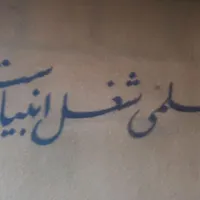 علمی شغل انبیاست